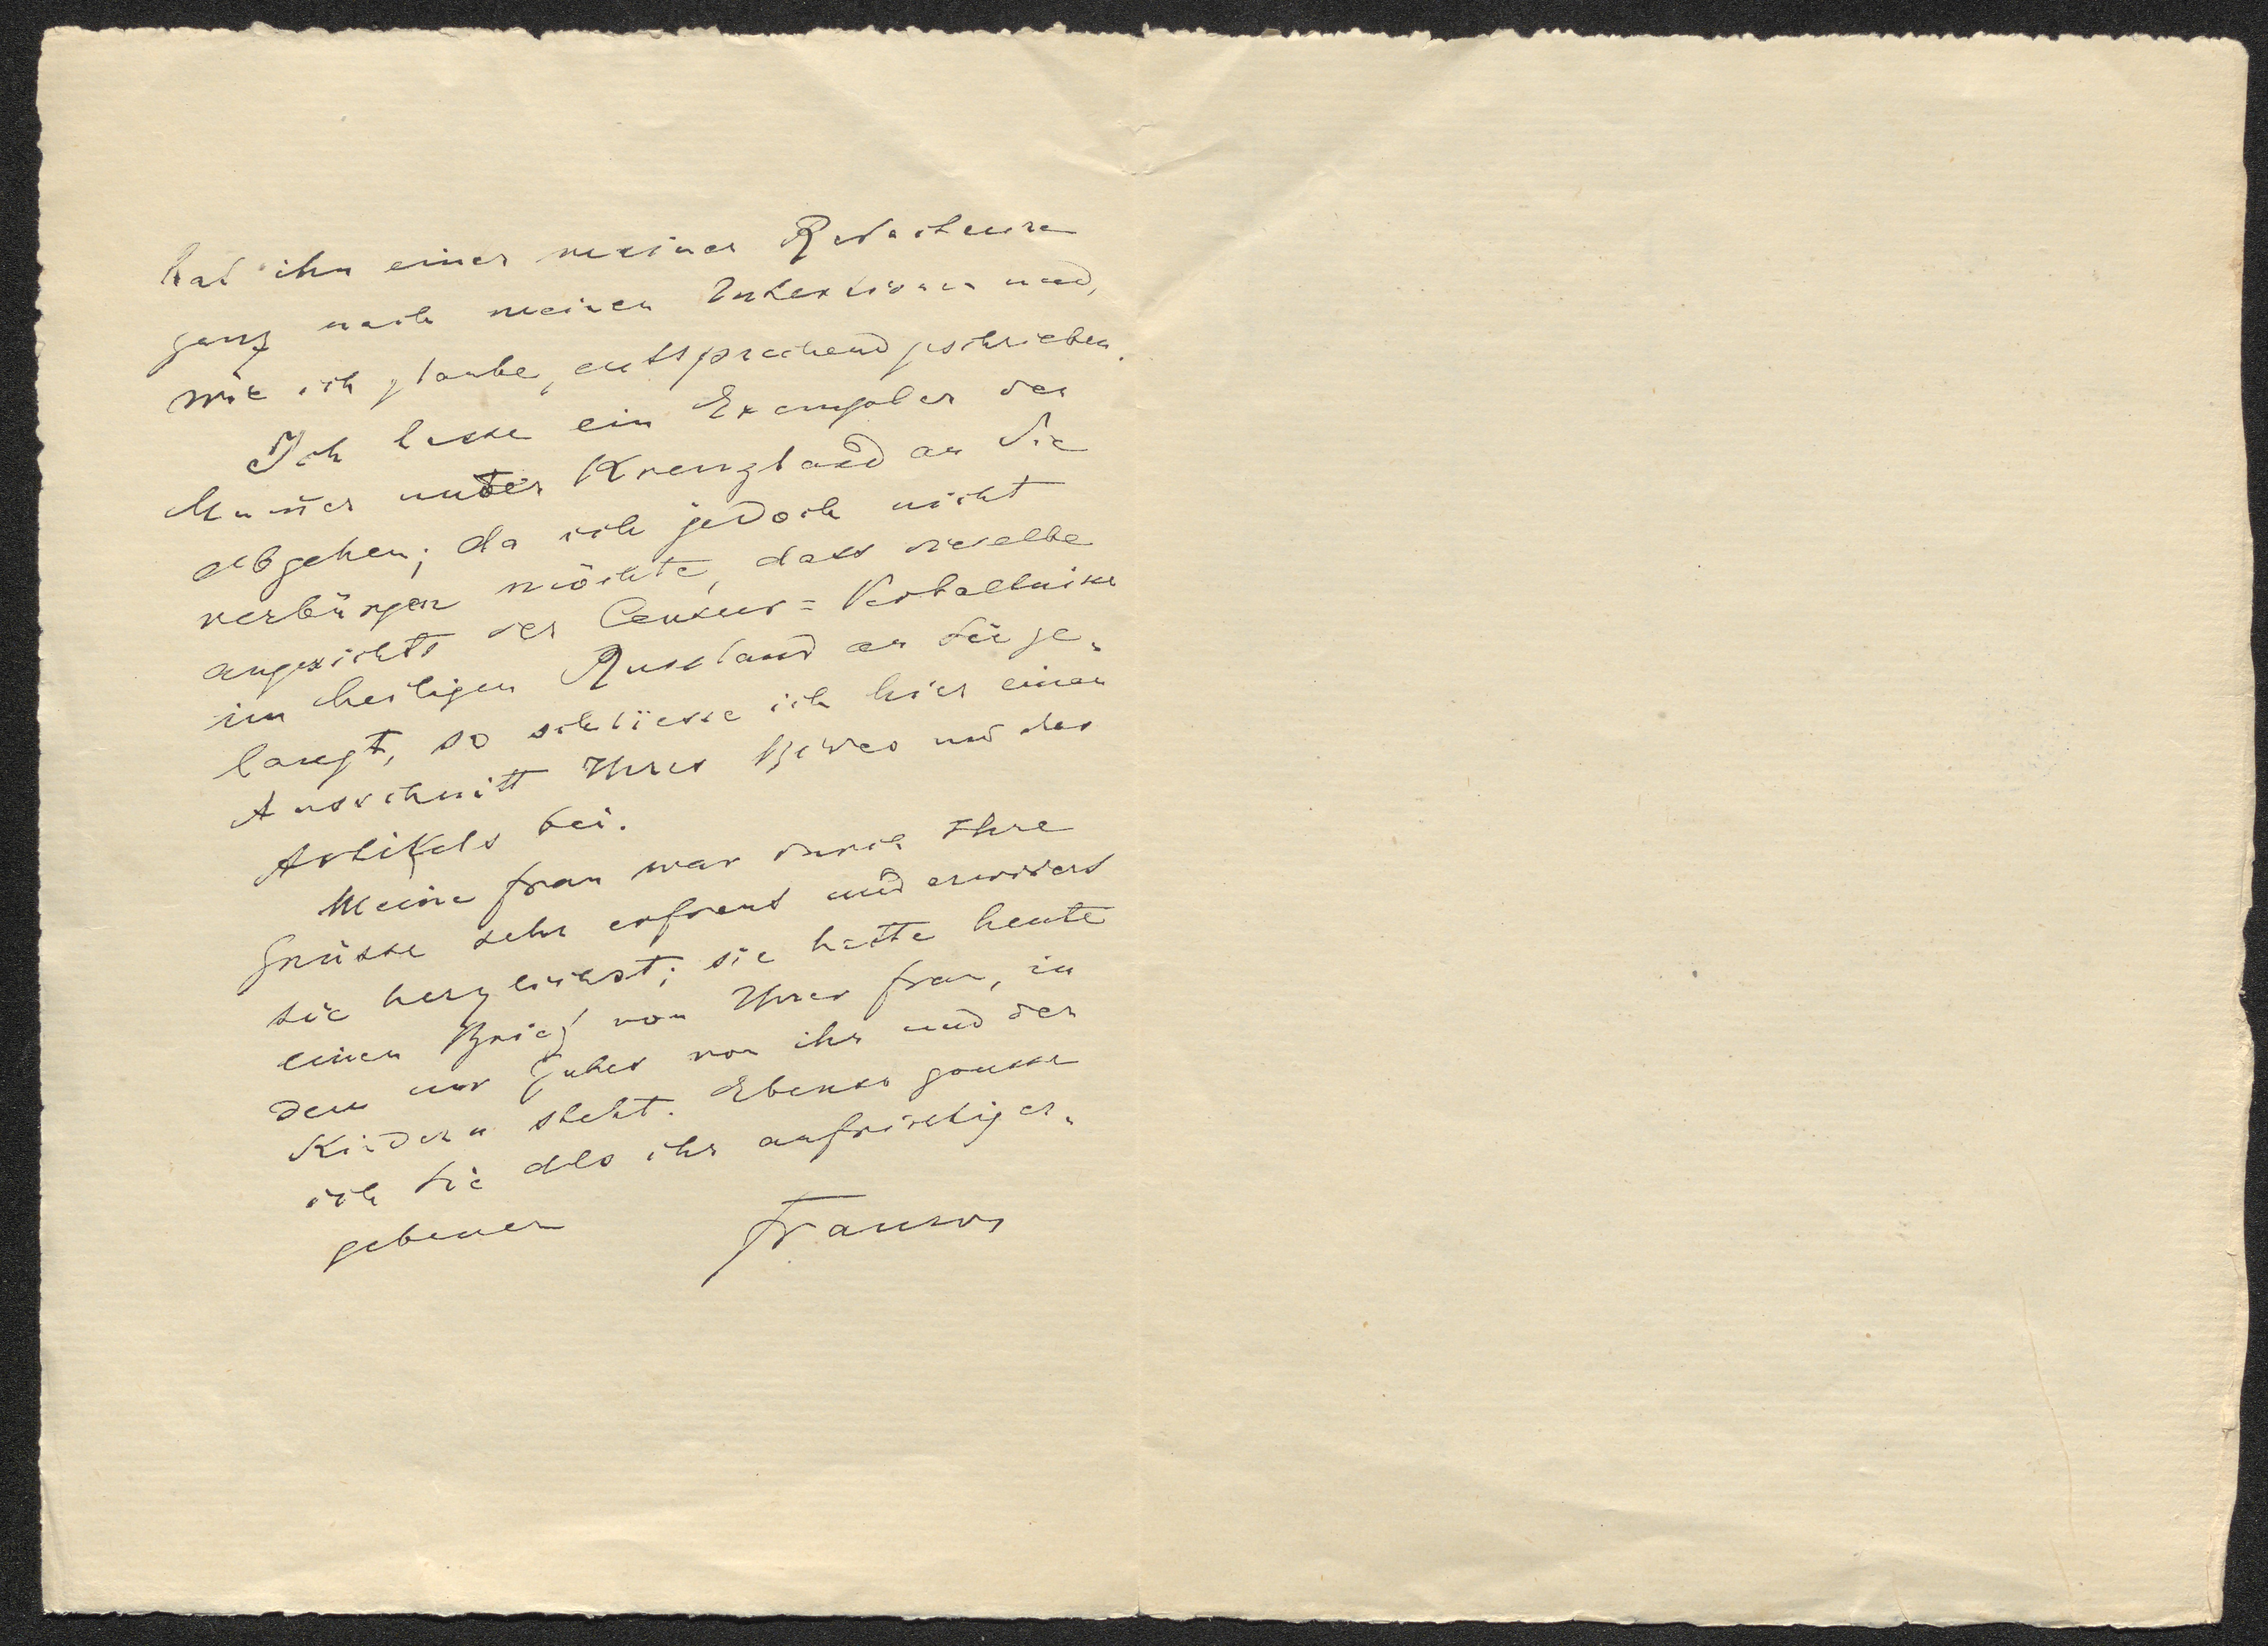 hat ihn einer meiner Redacteure
ganz nach meinen Intentionen und,
wie ich glaube, entsprechend geschrieben.
Ich lasse ein Exemplar der
Num̄er unter Kreuzband an Sie
abgehen; da ich jedoch nicht
verbürgen möchte, dass dieselbe
angesichts der Censur=Verhältnisse
im heiligen Russland an Sie ge-
langt, so schliesse ich hier einen
Ausschnitt Ihres Bildes und des
Artikels bei.
Meine Frau war durch Ihre
Grüsse sehr erfreut und erwidert
sie herzlichst; sie hatte heute
einen Brief von Ihrer Frau, in
dem nur Gutes von ihr und den
Kindern steht. Ebenso grüsse
ich Sie als Ihr aufrichtig er-
gebener
Franzos